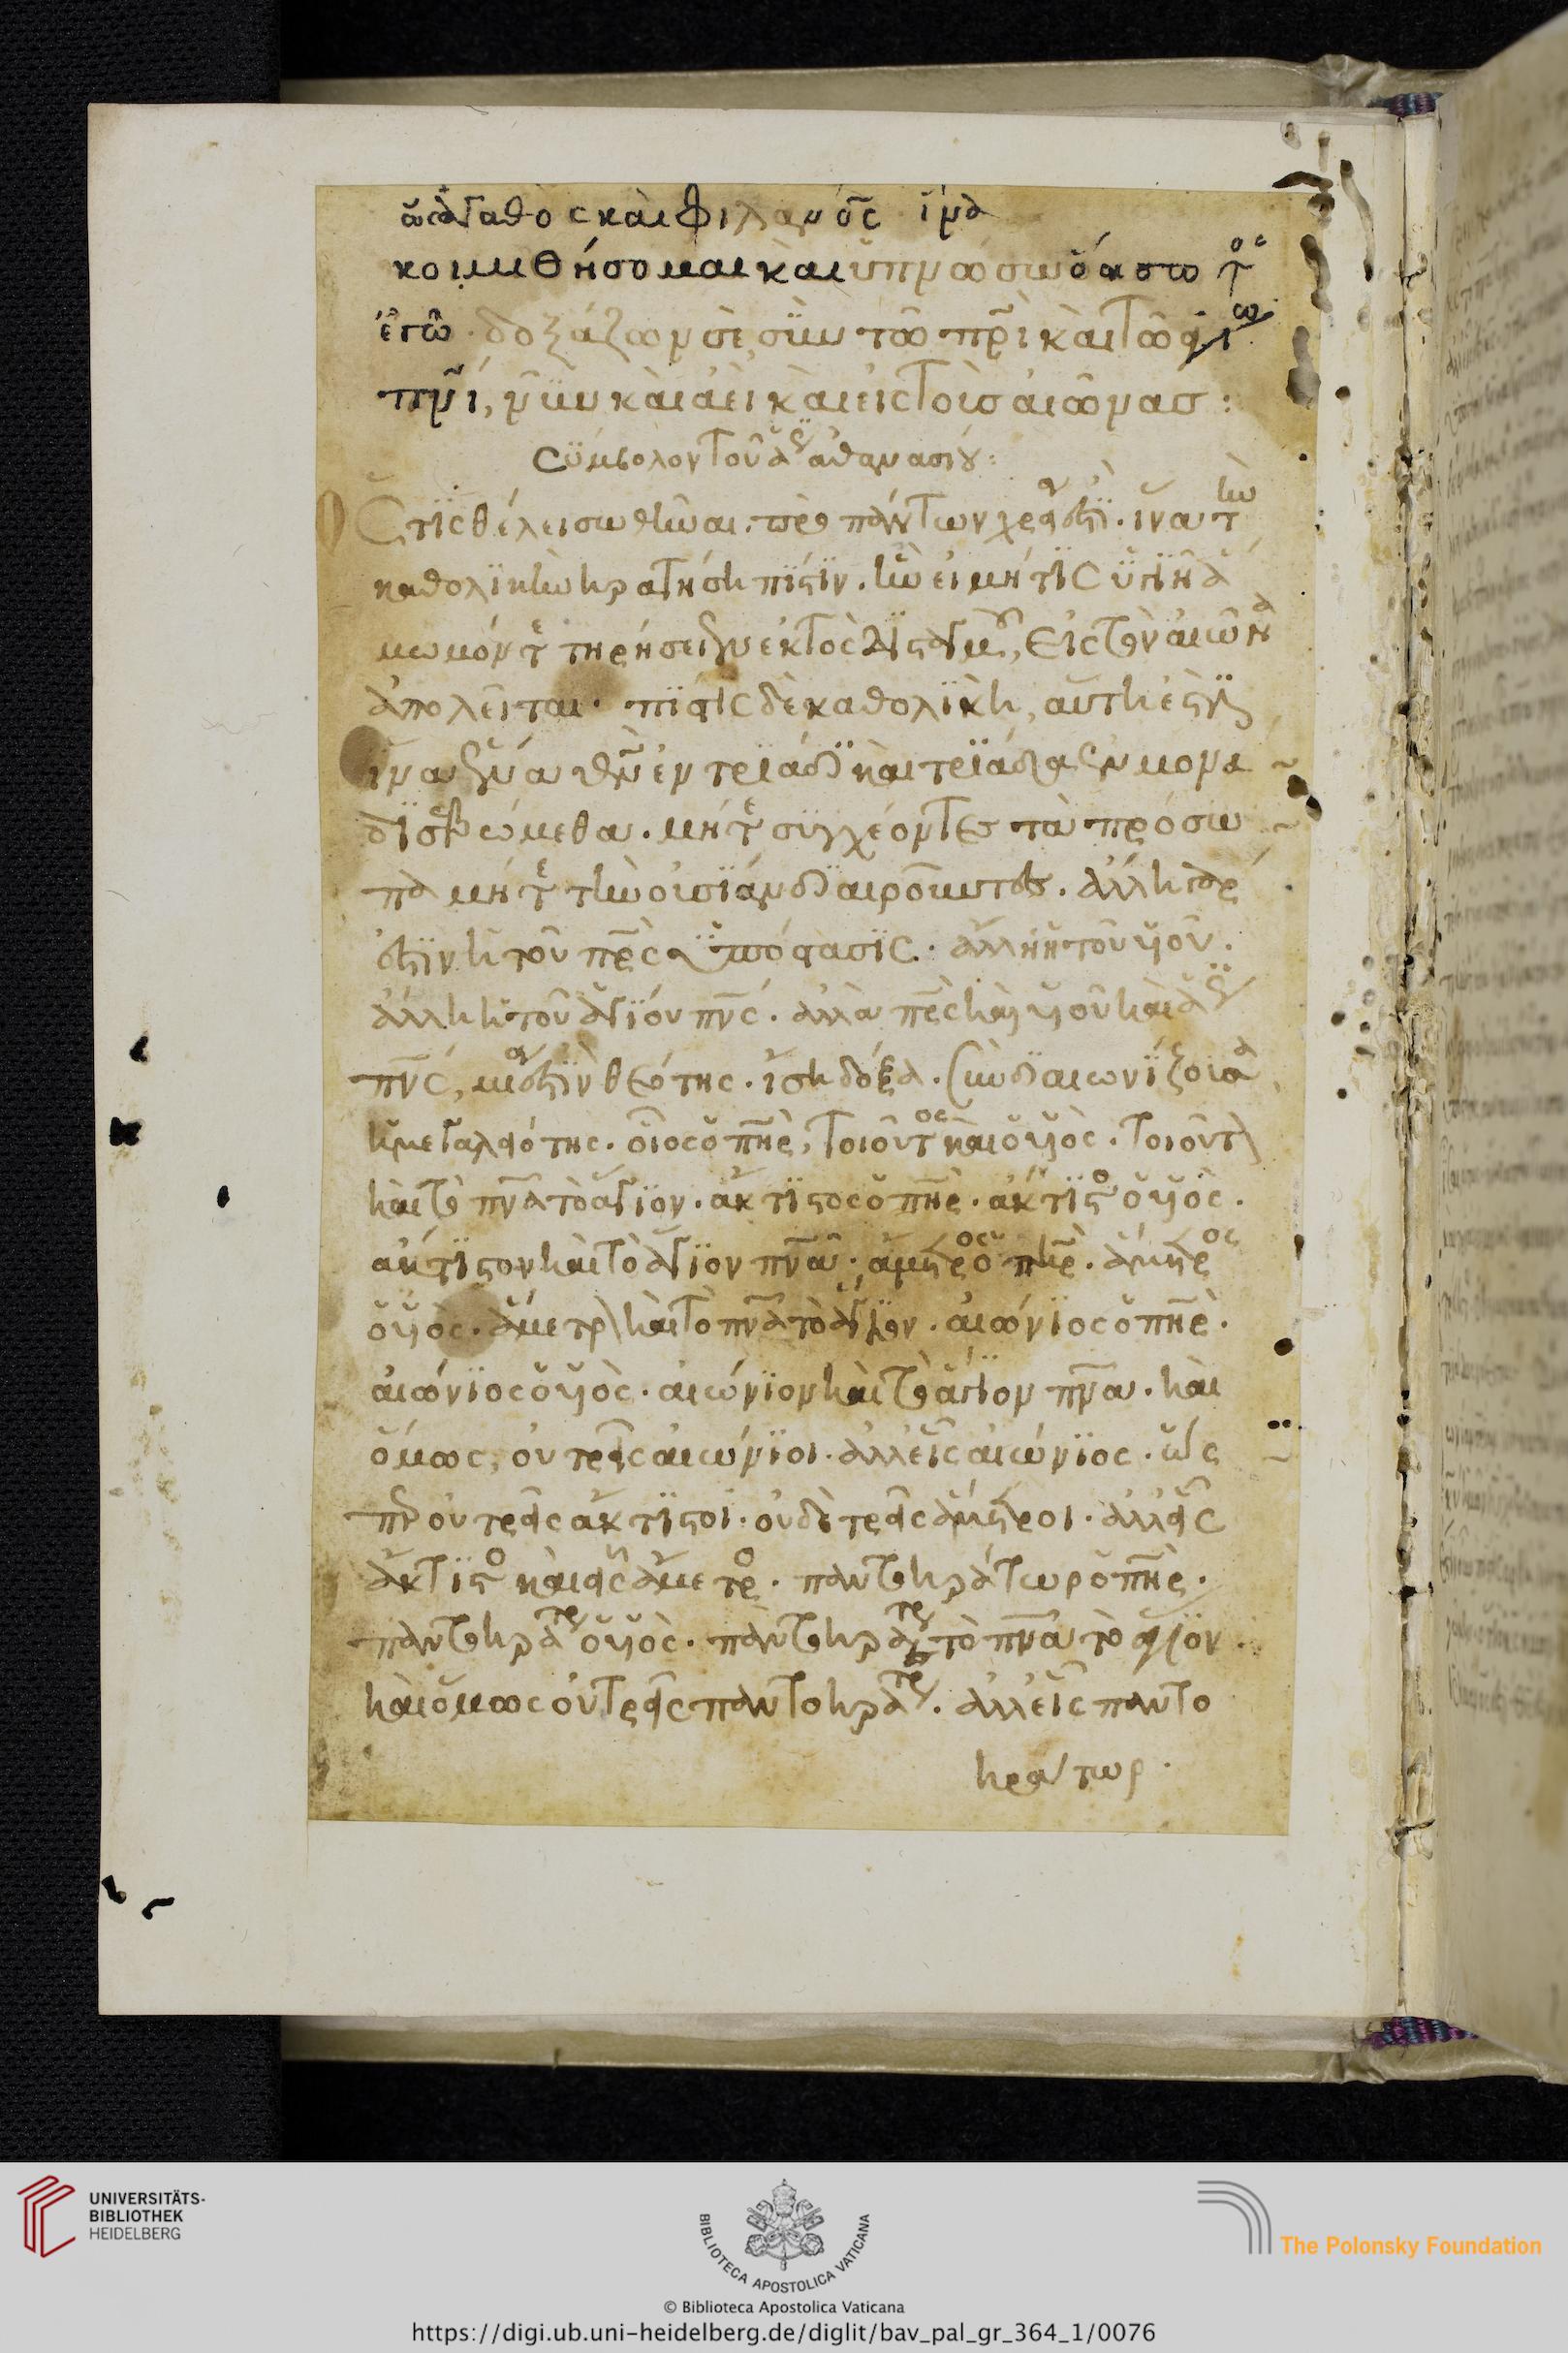 ὡς ἀγαθὸς καὶ φιλανο̅ς ἵνα
κοιμηθήσομαι καὶ ὑπνώσω ὁ ἄσωτος
ἐγὼ · δοξάζων σὲ, σὺν τῶ πρ̅ι καὶ τῶ ἁγίω
πν̅ι, νῦν καὶ ἀεὶ καὶ εἰς τοὺς αἰῶνας :
Σύμβολον τοῦ ἁγ ἀθανασίου :
Ὅστις θέλει σωθῆναι. πρὸ πάντων χρεία ἐστὶ. ἵνα τὴν
καθολικὴν κρατήση πίστιν. ἣν εἰ μή τις ὑγιῆ ἀ
μωμόν τε τηρήσειεν ἐκτὸς, εἰς τὸν αἰῶνα
ἀπολεῖται · πίστις δὲ καθολικὴ, αὕτη ἐστὶν
ἵνα ἕνα θν̅ ἐν τριάδι καὶ τριάδα ἐν μονά
δι σεβώμεθα. μήτε συγχέοντες τὰ πρόσω
πα μήτε τὴν οὐσίαν διαιροῦντες. ἄλλη γάρ
ἐστὶν ἡ τοῦ πρ̅ς ὑπόστασις. ἄλλη ἡ τοῦ υἱοῦ.
ἄλλη ἡ τοῦ ἁγίου πν̅ς. ἀλλὰ πρ̅ς καὶ υἱοῦ καὶ ἁγ
πν̅ς, μία ἐστὶν θεότης. ἴση δόξα. συνδιαιωνίζουσα
ἡ μεγαλειότης. οἷος ὁ πη̅ρ, τοιοῦτος καὶ ὁ υἱὸς. τοιοῦτ
καὶ τὸ πν̅α τὸ ἅγιον. ἄκτιστος ὁ πη̅ρ. ἄκτιστο ὁ υἱὸς.
ἄκτιστον καὶ τὸ ἅγιον πν̅α. ἄμετρος ὁ πη̅ρ. ἄμετρος
ὁ υἱὸς. ἄμετρ καὶ τὸ πν̅α τὸ ἅγιον. αἰώνιος ὁ πη̅ρ.
αἰώνιος ὁ υἱὸς. αἰώνιον καὶ τὸ ἅγιον πν̅α. καὶ
ὅμως, οὐ τρεῖς αἰώνιοι. ἀλλ εἷς αἰώνιος. ὥς
περ οὐ τρεῖς ἄκτιστοι. οὐδὲ τρεῖς ἄμετροι. ἀλλ εἷς
ἄκτιστο καὶ εἷς ἄμετρο. παντοκράτωρ ὁ πη̅ρ.
παντοκράτ ὁ υἱὸς. παντοκράτ τὸ πν̅α τὸ ἅγιον.
καὶ ὅμως οὐ τρεῖς παντοκράτ. ἀλλ εἷς παντο
κράτωρ.
UNIVERSITÄTS-
BIBLIOTHEK
HEIDELBERG
BIBLIOTECA APOSTOLICA VATICANA
The Polonsky Foundation
© Biblioteca Apostolica Vaticana
https://digi.ub.uni-heidelberg.de/diglit/bav_pal_gr_364_1/0076